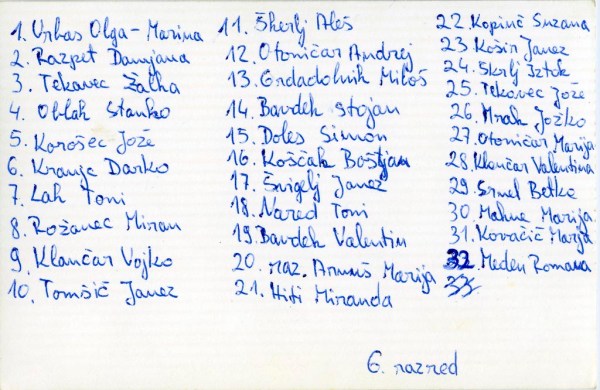 1. Urbas Olga-Marina
2. Razpet Damjana
3. Tekavec Žalka
4. Oblak Stanko
5. Korošec Jože
6. Kranjc Darko
7. Lah Toni
8. Rožanec Miran
9. Klančar Vojko
10. Tomšič Janez
11. Škerlj Aleš
12. Otoničar Andrej
13. Grdadolnik Miloš
14. Bavdek Stojan
15. Doles Simon
16. Koščak Boštjan
17. Švigelj Janez
18. Nared Toni
19. Bavdek Valentin
20. raz. Marija
21. Hiti Miranda
22. Kopinč Suzana
23. Košir Janez
24. Škrlj Iztok
25. Tekovec Jože
26. Mrak Jožko
27. Otoničar Marija
28. Klančar Valentina
29. Srnel Betka
30. Mahne Marija
31. Kovačič Marja
32. Meden Romana
33
6. razred